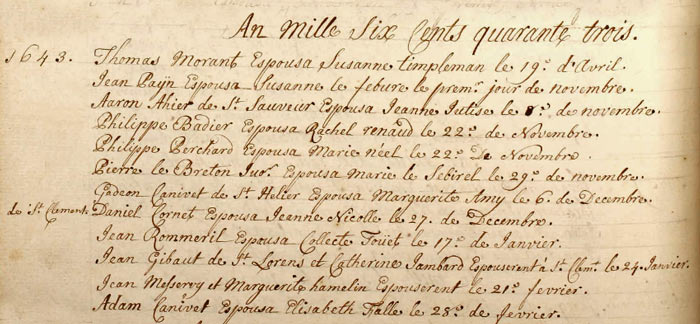 An Mille Six Cents quarante trois.
1643. Thomas Morant Espousa Susanne timpleman le 19.e d'Avril.
Jean Payn Espousa Susanne le febure le prem.r jour de novembre.
Aaron Ahier de S.t Sauveur Espousa Jeanne Jutise le 8.e de novembre.
Philippe Badier Espousa Rachel renaud le 22.e de Novembre.
Philippe Perchard Espousa Marie néel le 22.e De Novembre.
Pierre le Breton Jur.r Espousa marie le Sebirel le 29.e de novembre.
Gedeon Canivet de S.t Helier Espousa Marguerite Amy le 6. de Decembre.
de S.t Clement. Daniel Cornet Espousa Jeanne Nicolle le 27. de Decembre.
Jean Rommeril Espousa Collecte Foüet le 17.e de Janvier.
Jean Gibaut de S.t Lorens et Catherine Jambard Espouserent à S.t Clem.t le 24. Janvier.
Jean Messervy et Marguerite hamelin Espouserent le 21.e fevrier.
Adam Canivet Espousa Elisabeth Falle le 28.e de fevrier.